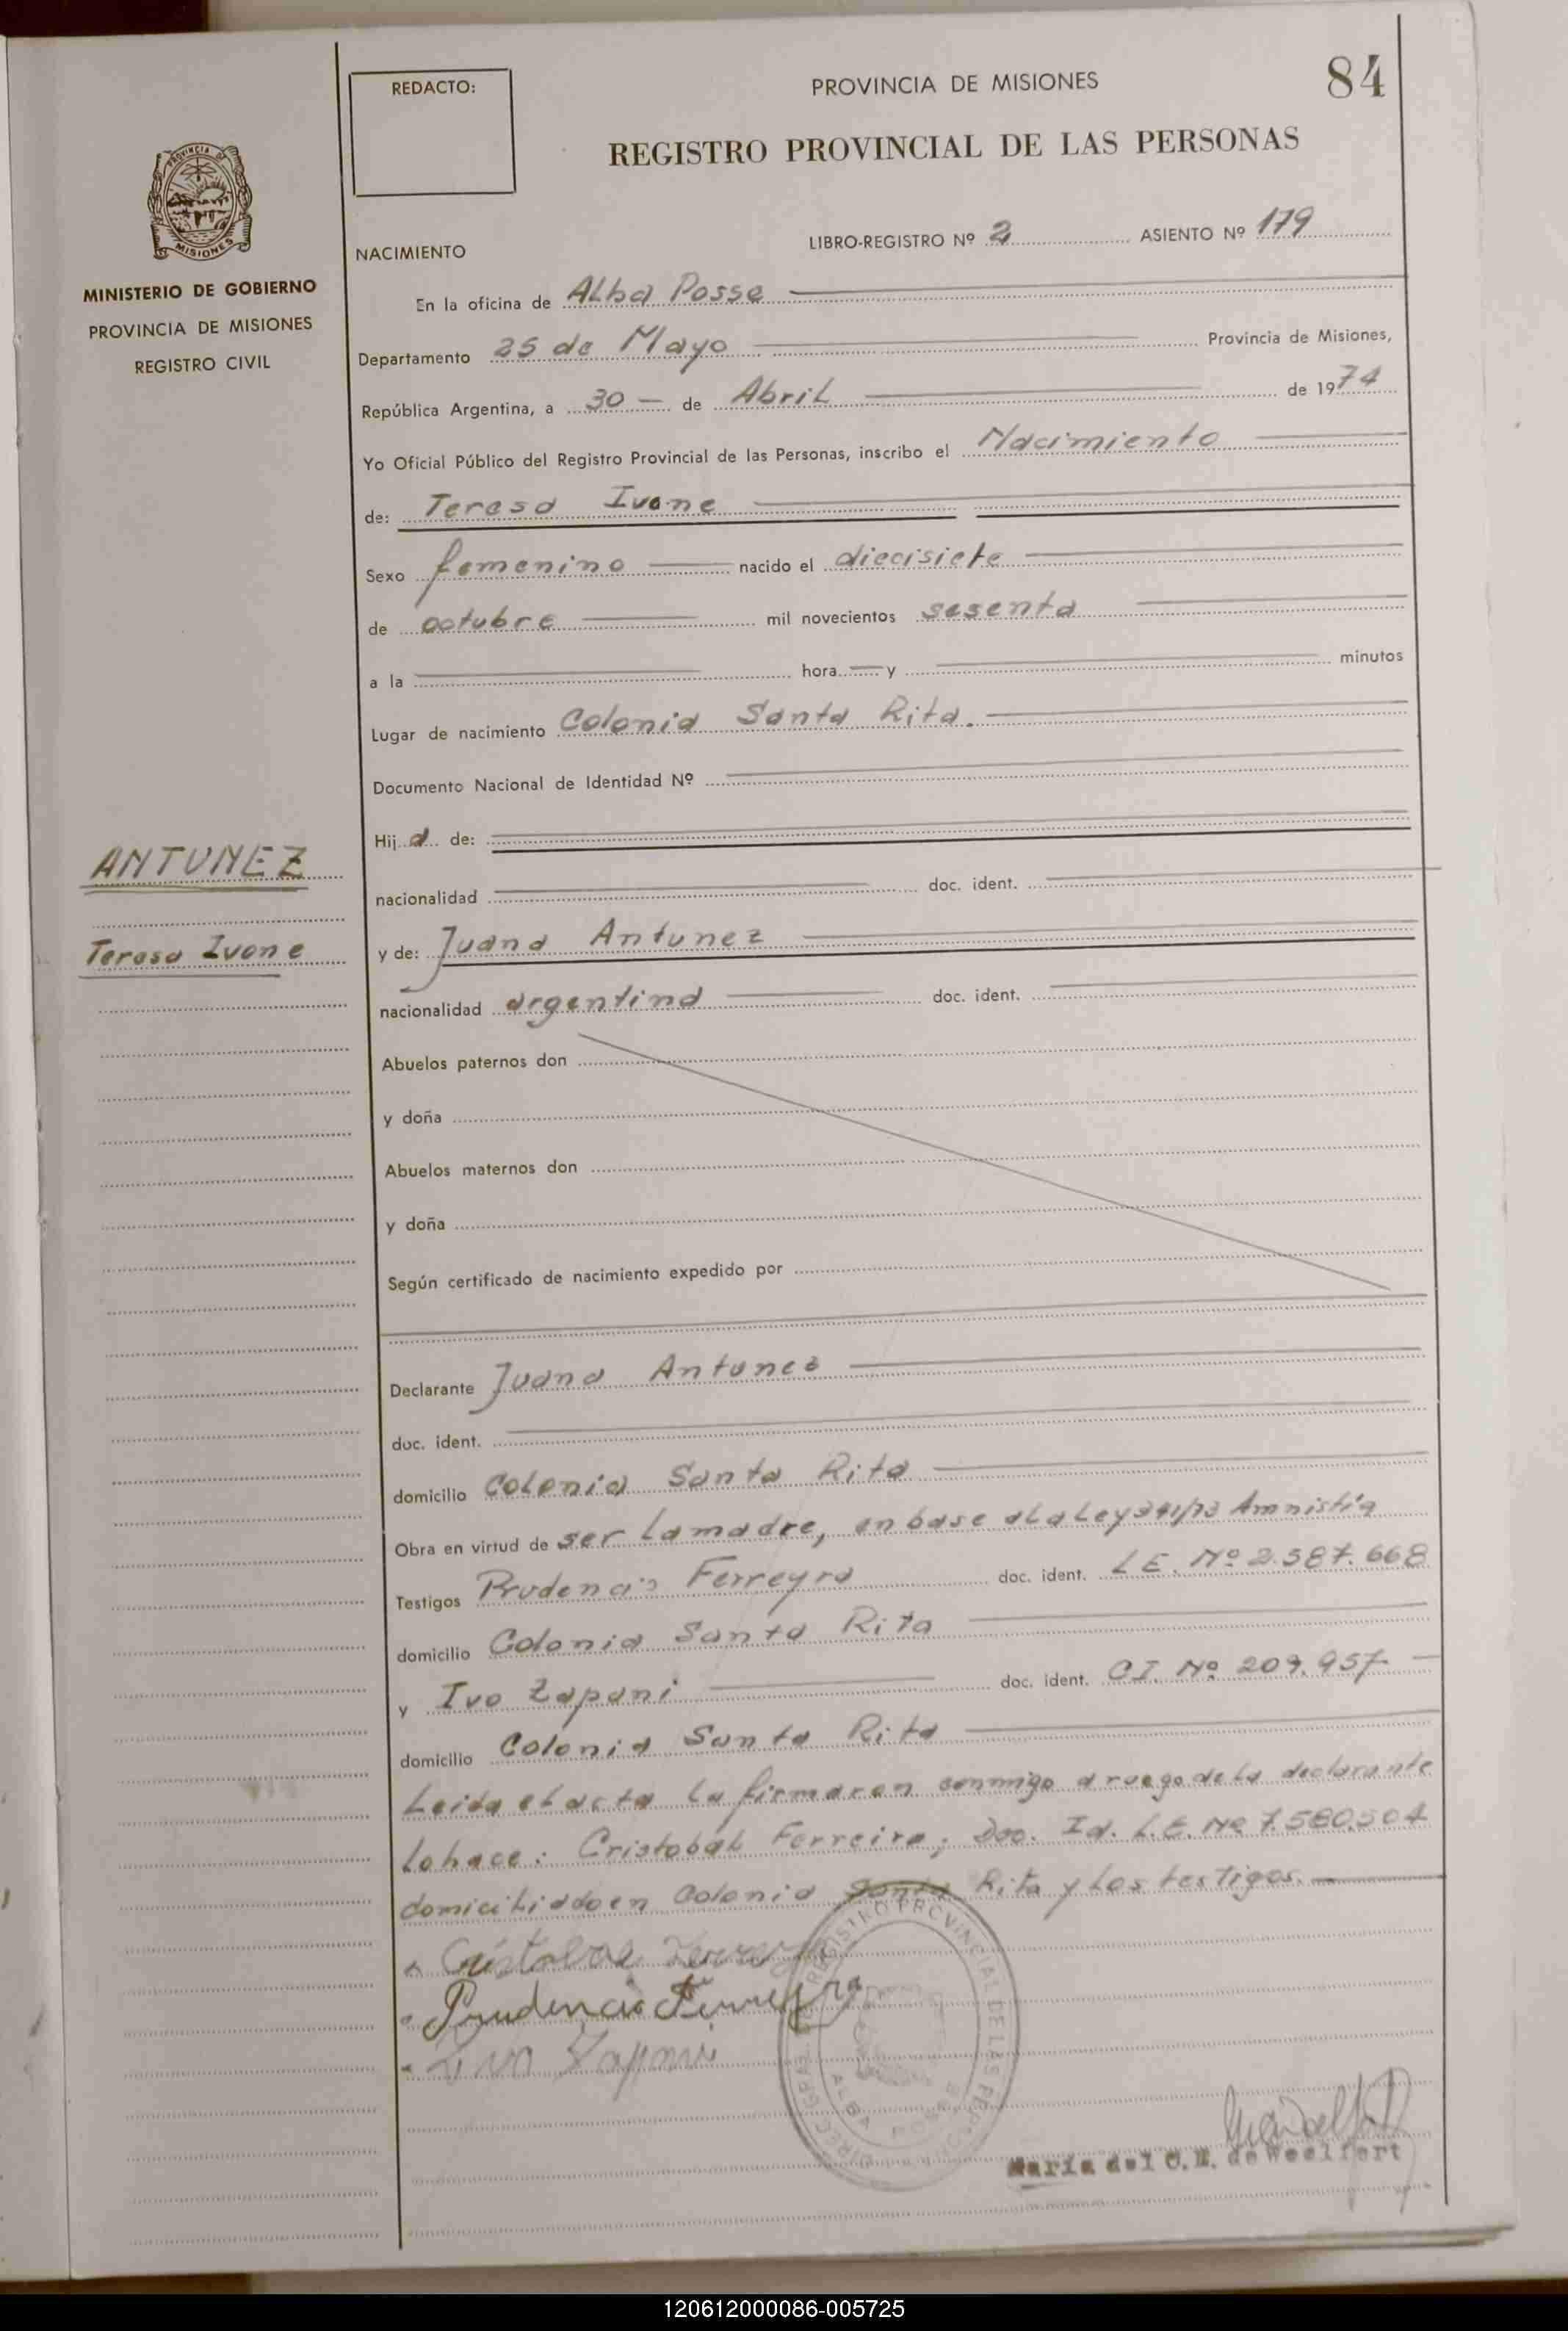 84
REDACTO:
PROVINCIA DE MISIONES
REGISTRO PROVINCIAL DE LAS PERSONAS
PROVINCIA DE MISIONES
MINISTERIO DE GOBIERNO
PROVINCIA DE MISIONES
REGISTRO CIVIL
NACIMIENTO
LIBRO-REGISTRO Nº 2 ASIENTO Nº 179
En la oficina de Alba Posse
Departamento 25 de Mayo Provincia de Misiones,
República Argentina, a 30 - de Abril de 1974
Yo Oficial Público del Registro Provincial de las Personas, inscribo el Nacimiento
de: Teresa Ivone
Sexo femenino nacido el diecisiete
de octubre mil novecientos sesenta
a la hora y minutos
Lugar de nacimiento Colonia Santa Rita.
Documento Nacional de Identidad Nº
Hij a de:
ANTUNEZ
nacionalidad doc. ident.
Teresa Ivone
y de: Juana Antunez
nacionalidad argentina doc. ident.
Abuelos paternos don
y doña
Abuelos maternos don
y doña
Según certificado de nacimiento expedido por
Declarante Juana Antunez
doc. ident.
domicilio Colonia Santa Rita
Obra en virtud de ser la madre, en base a la Ley 341/73 Amnistía
Testigos Prudencio Ferreyra doc. ident. L E. Nº 2.587.668
domicilio Colonia Santa Rita
y Ivo Zapani doc. ident. CI. Nº 209.957
domicilio Colonia Santa Rita
Leida el acta la firmaron conmigo a ruego de la declarante
lo hace: Cristobal Ferreira; Doc. Id. L.E. Nº 7.580.504
domiciliado en Colonia Santa Rita y los testigos.
Cristobal
Prudencio Ferreyra
Ivo Zapani
REGISTRO PROVINCIAL DE LAS PERSONAS
ALBA POSSE
María del C. M. de Woelfert
120612000086-005725